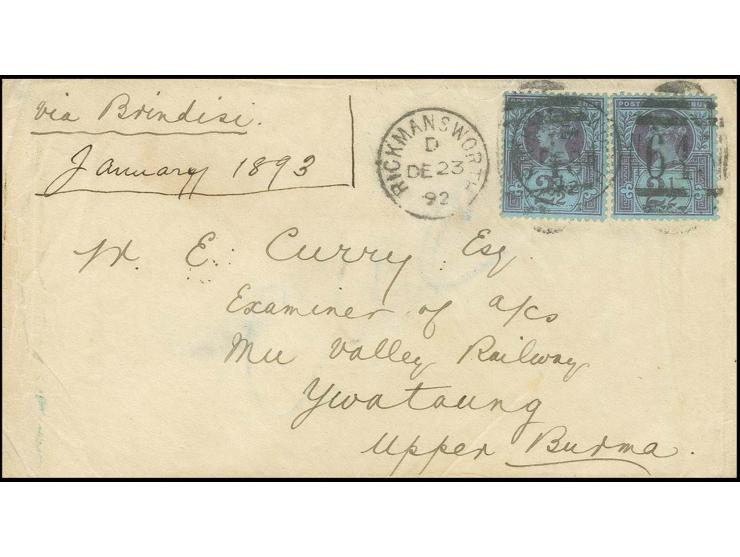 via Brindisi.
January 1893
RICKMANSWORTH
D
DE 23
92
2½
2½
W. E. Curry Esq
Examiner of a/cs
Mu Valley Railway
Ywataung
Upper Burma.